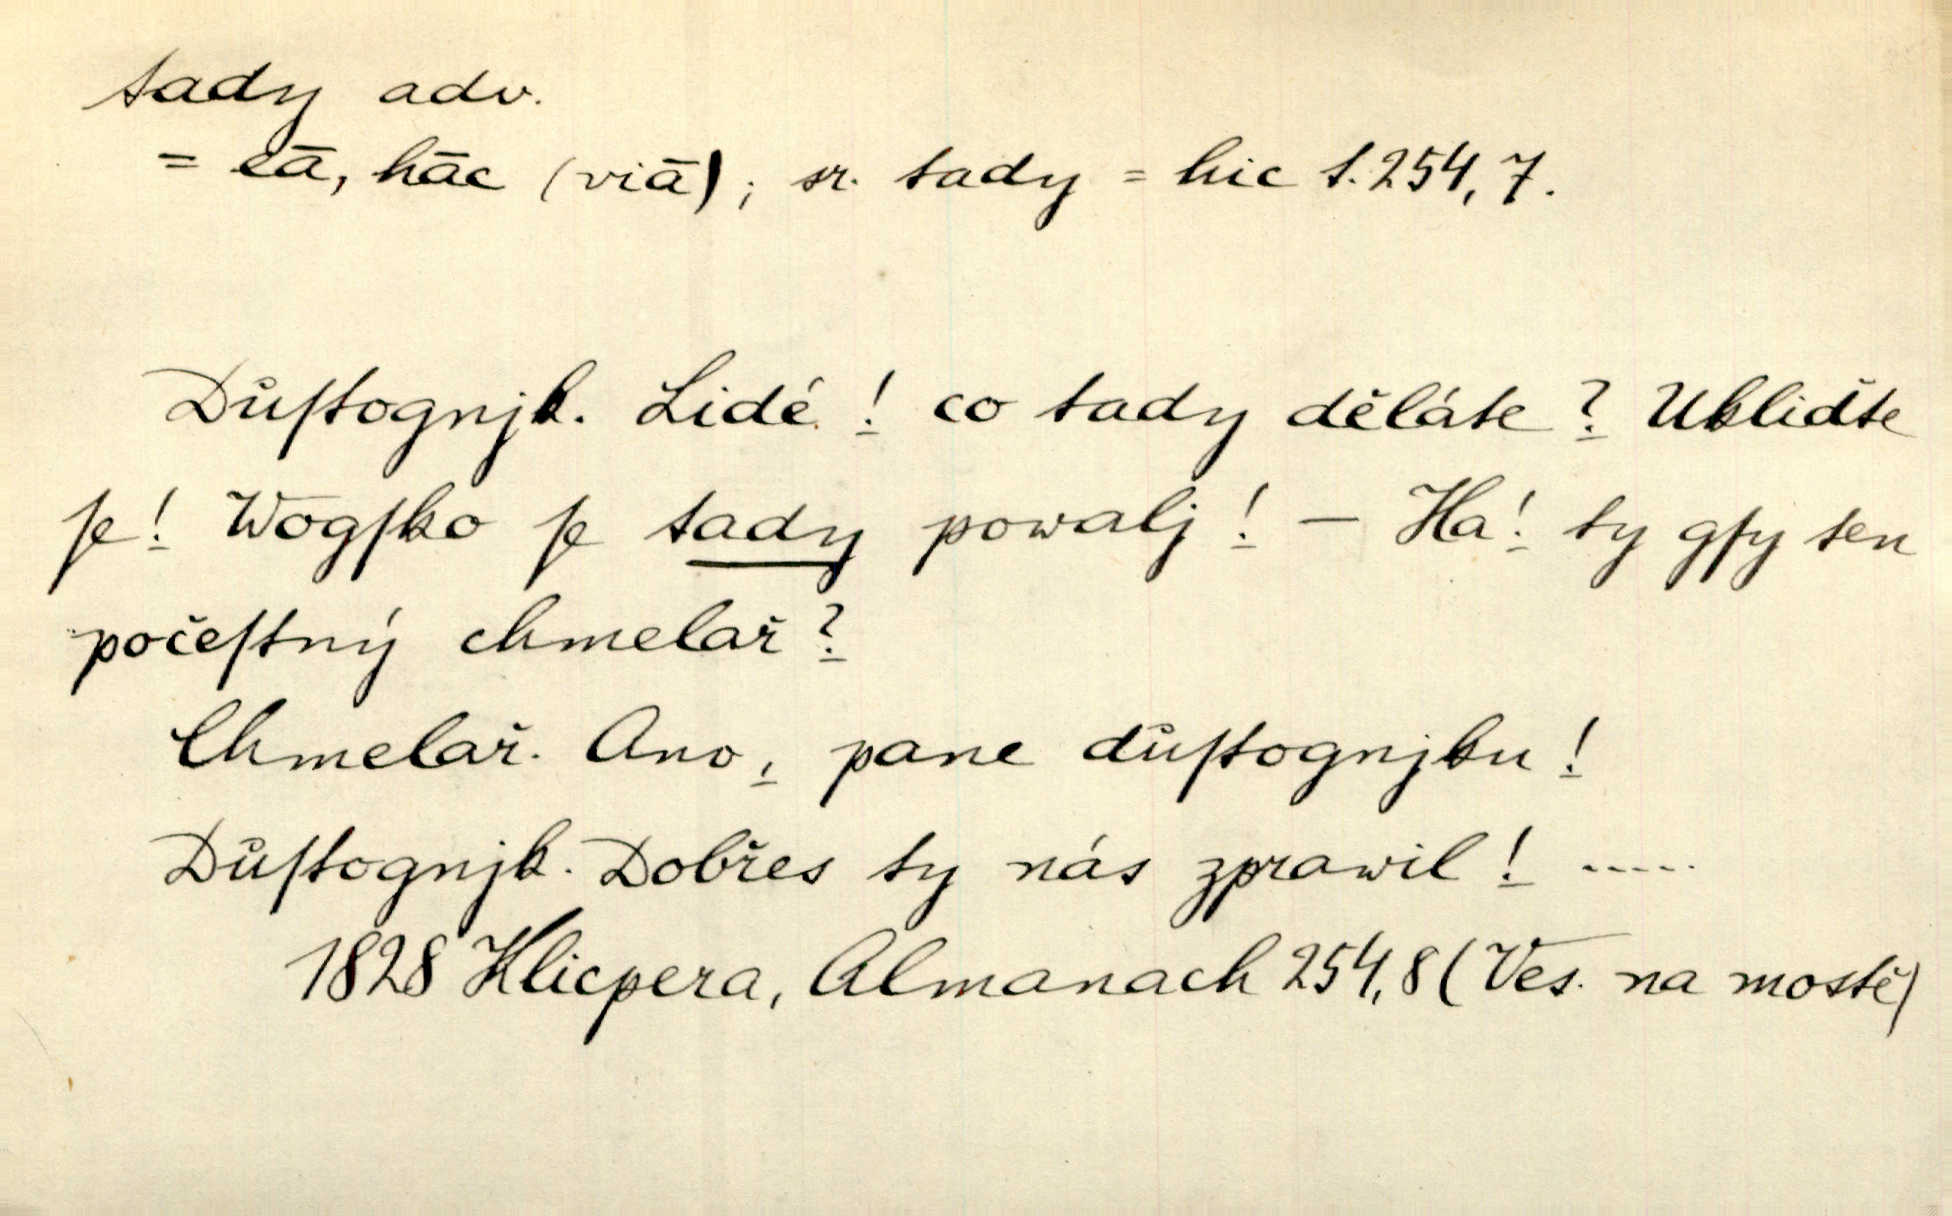 tady adv.
= eā, hāc (viā); sr. tady = hic t. 254, 7.
Důſtognjk. Lidé! co tady děláte? Ukliďte
ſe! Wogſko ſe tady powalj! — Ha! ty gſy ten
počeſtný chmelař?
Chmelař. Ano, pane důſtognjku!
Důſtognjk. Dobřes ty nás zprawil! .....
1828 Klicpera, Almanach 254, 8 (Ves. na mostě)